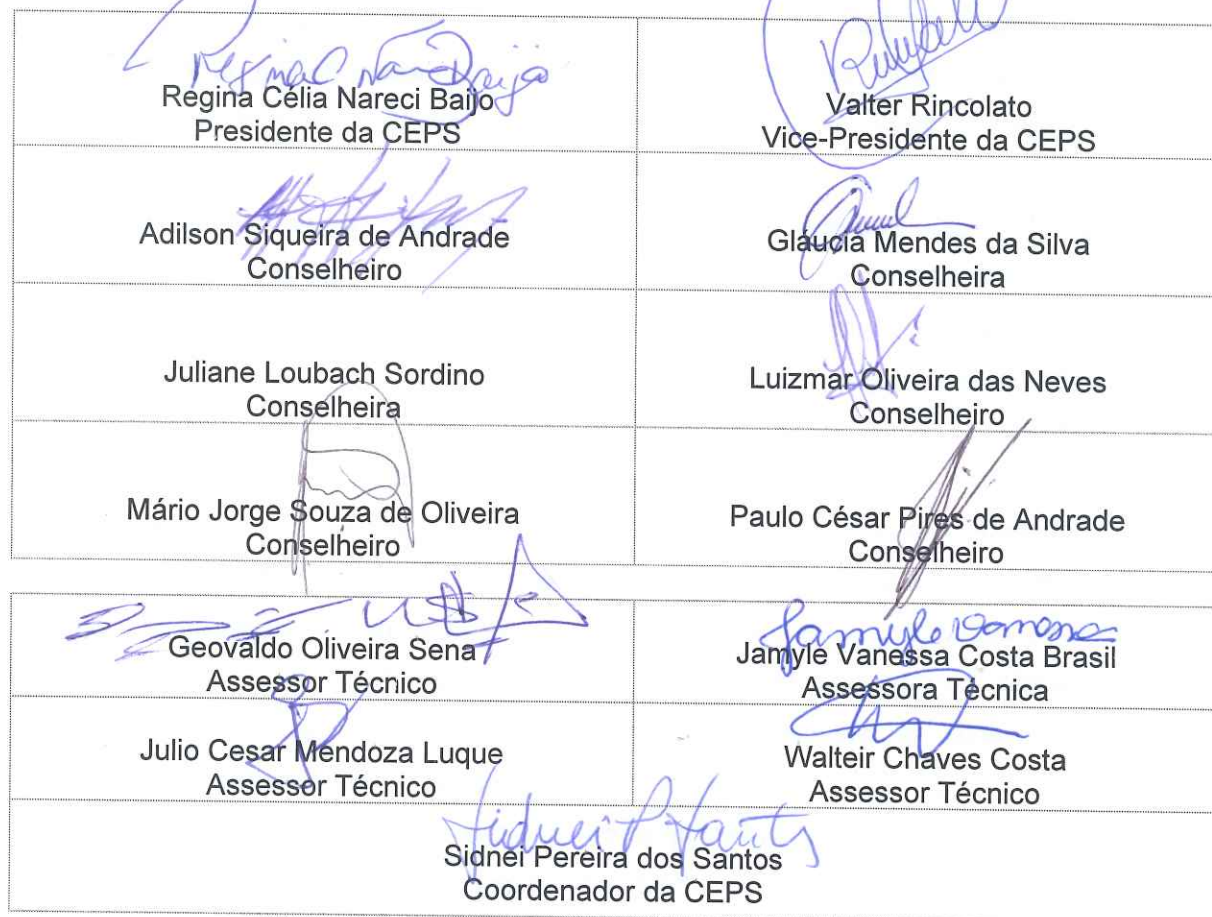 Regina Célia Nareci Baijo
Presidente da CEPS
Valter Rincolato
Vice-Presidente da CEPS
Adilson Siqueira de Andrade
Conselheiro
Gláucia Mendes da Silva
Conselheira
Juliane Loubach Sordino
Conselheira
Luizmar Oliveira das Neves
Conselheiro
Mário Jorge Souza de Oliveira
Conselheiro
Paulo César Pires de Andrade
Conselheiro
Geovaldo Oliveira Sena
Assessor Técnico
Jamyle Vanessa
Jamyle Vanessa Costa Brasil
Assessora Técnica
Julio Cesar Mendoza Luque
Assessor Técnico
Walteir Chaves Costa
Assessor Técnico
Sidnei P Santos
Sidnei Pereira dos Santos
Coordenador da CEPS